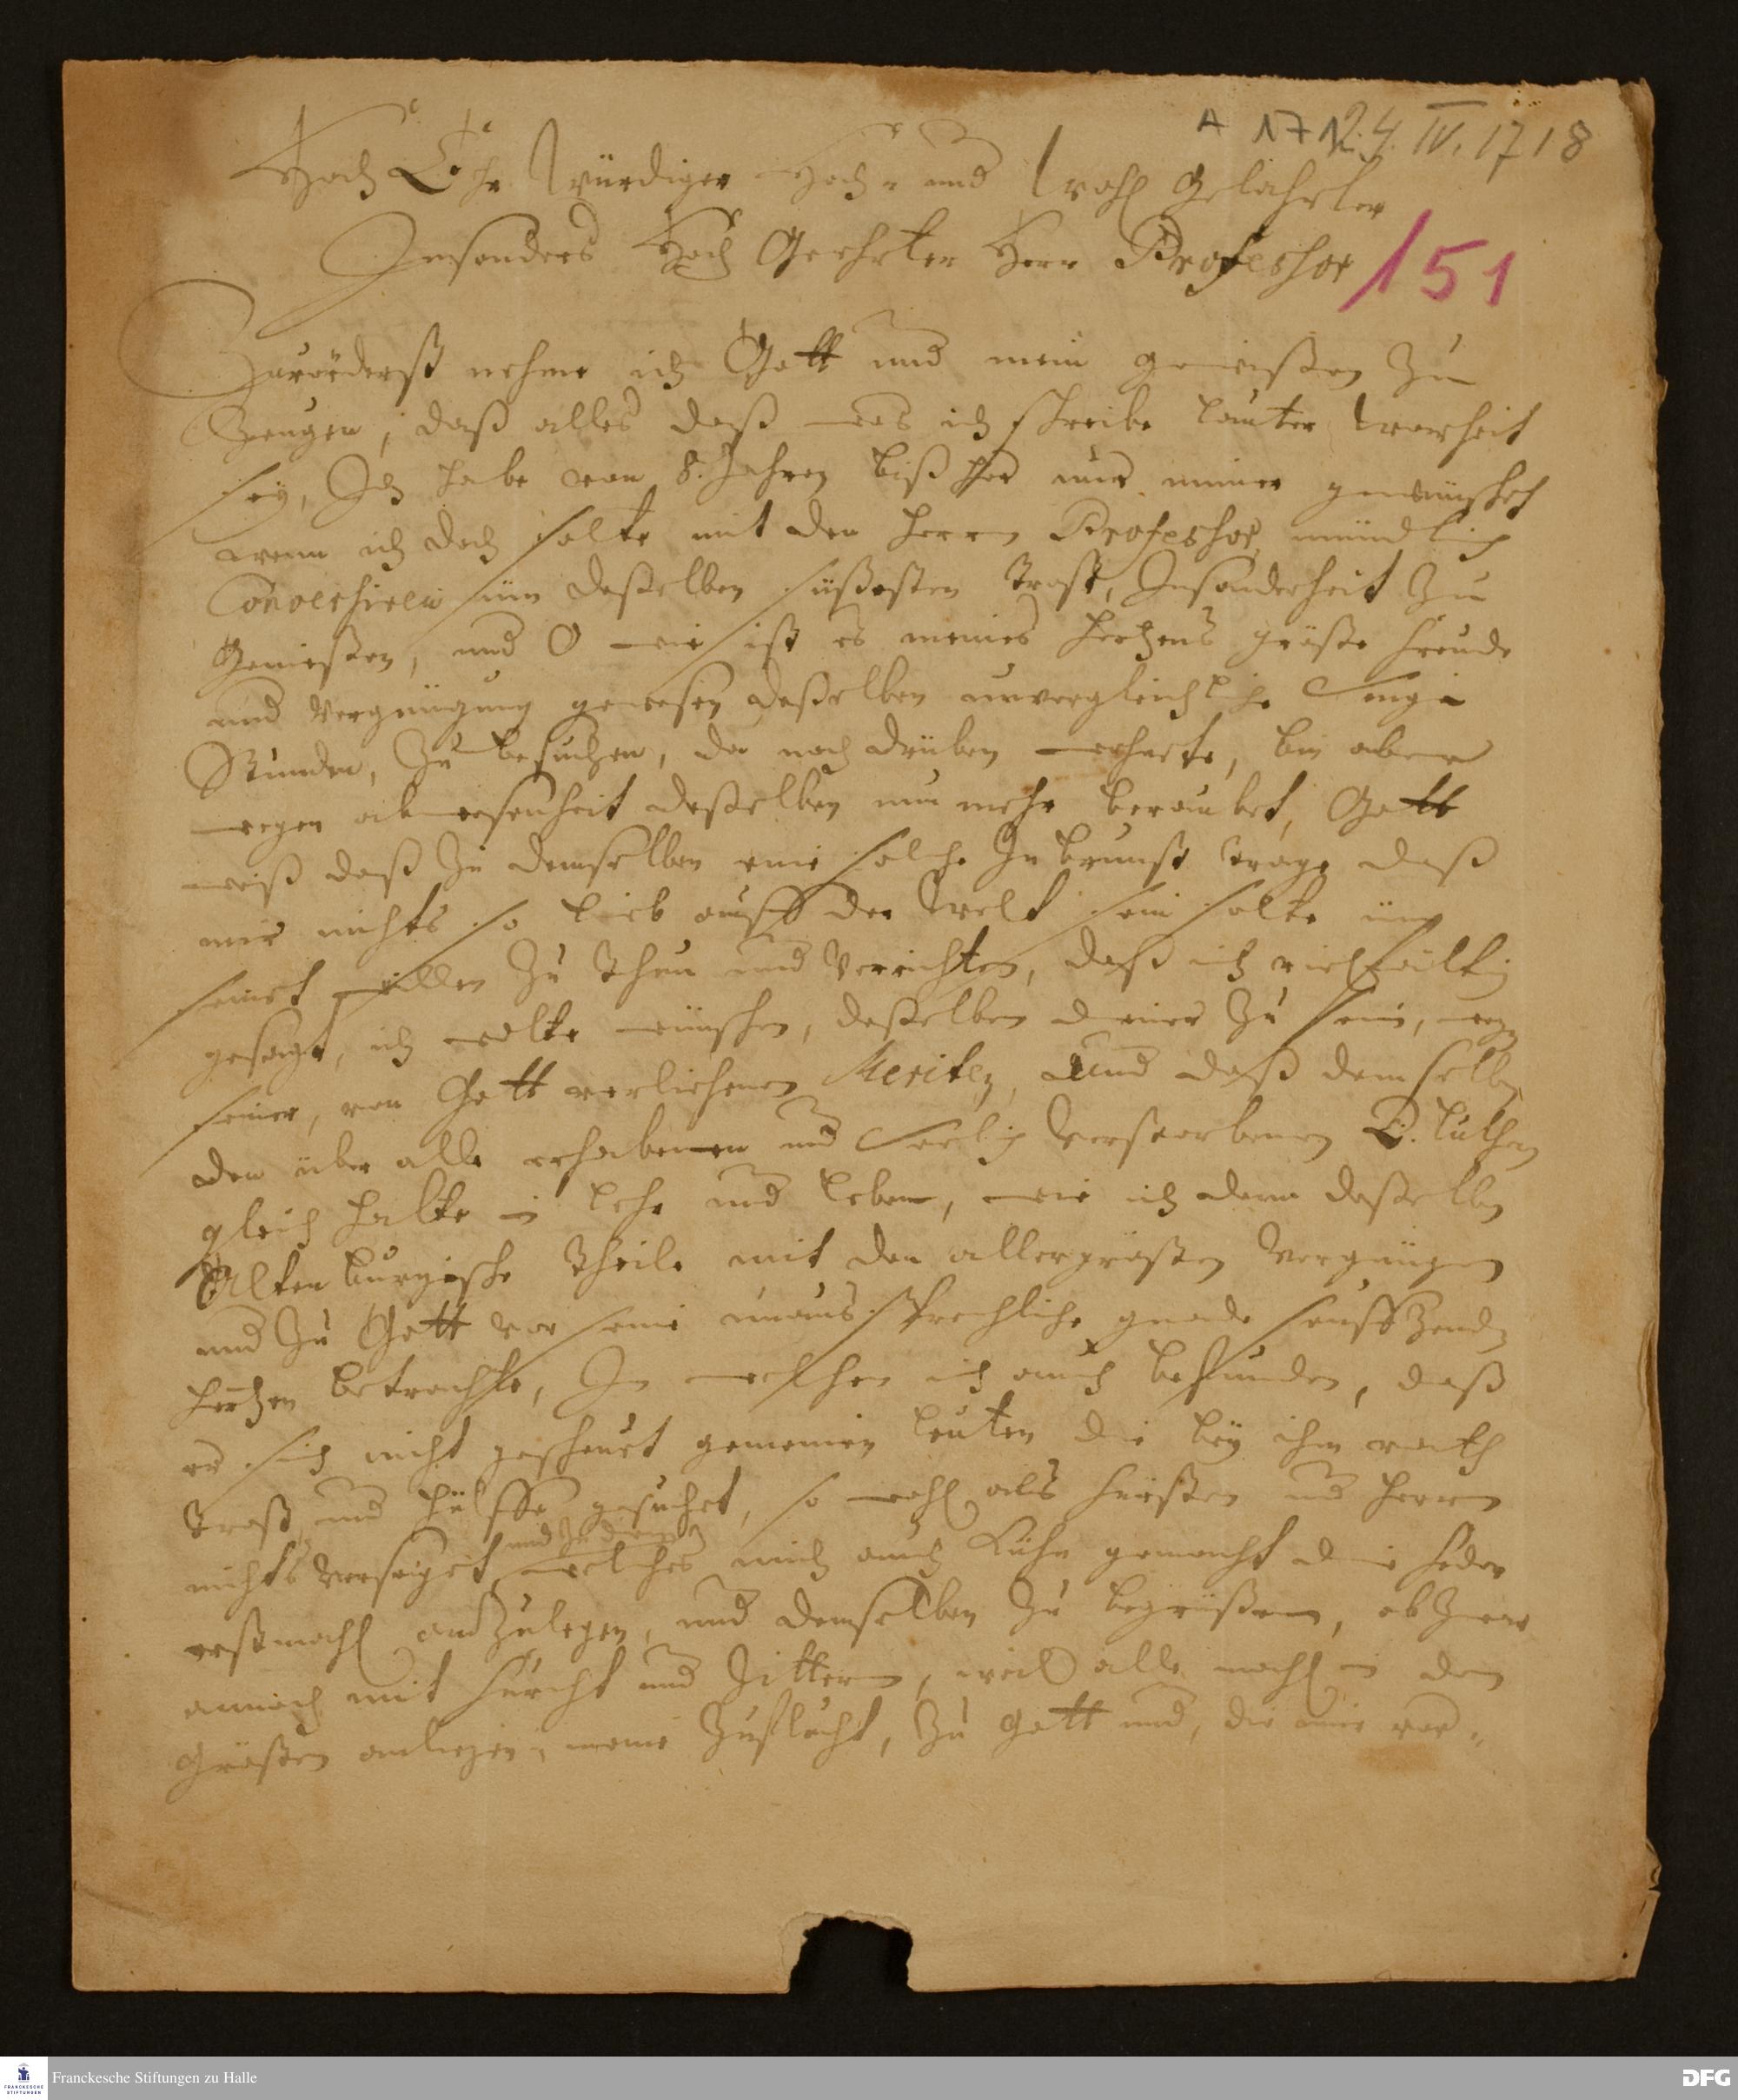 A 171 24. IV. 1718
Hoch Ehr Würdiger Hoch- und Wohl Gelahrter
Insonders Hoch Geehrter Herr Professor
151
Zuvörderst nehme ich Gott und mein gewißen Zu
Zeugen, daß alles daß was ich schreibe lauter Warheit
sey, Ich habe von 8. Jahren biß her nur immer gewünschet
wenn ich doch solte mit den Herrn Professor mündlich
Conversiren um deßelben süßesten Trost, Insonderheit Zu
Genießen, und O wie ist es meines Hertzens gröste freude
und Vergnügung gewesen deßelben unvergleichliche Singe
Stunden, Zu besuchen, da noch drüben wohnete, bin aber
wegen abwesenheit deßelben nun mehr beraubet, Gott
weiß daß Zu demselben eine solche Inbrunst trage daß
mir nichts so lieb auff der Welt sein solte um
seinet willen Zu Thun und Verrichten, daß ich vielfaltig
gesagt, ich wolte wünschen, deßelben diener Zu sein, wegen
seiner, von Gott verliehenen Meriten, Und daß demselben
den über alle erhabenen und Seelig Verstorbenen D. Luthern
gleich halte in Lehr und Leben, wie ich denn deßelben
Altenburgische Theile mit den allergrösten Vergnügen
und Zu Gott vor seine unaussprechliche gnade seuffzenden
hertzen betrachte, In welchen ich auch befunden, daß
er sich nicht gescheuet gemeinen leuten die bey ihm rath
Trost und hülffe gesuchet, so wohl als fürsten und herren
nichts Versaget, welches mich auch Kühn gemacht die feder
und Zu dienen
erstmahl anZulegen, und demselben Zu begrüßen, ob Zwar
annoch mit furcht und Zittern, weil alle mahl in den
Grösten anliegen, meine Zuflucht, Zu Gott und, die mir vor-
Franckesche Stiftungen zu Halle
FRANCKESCHE
STIFTUNGEN
DFG